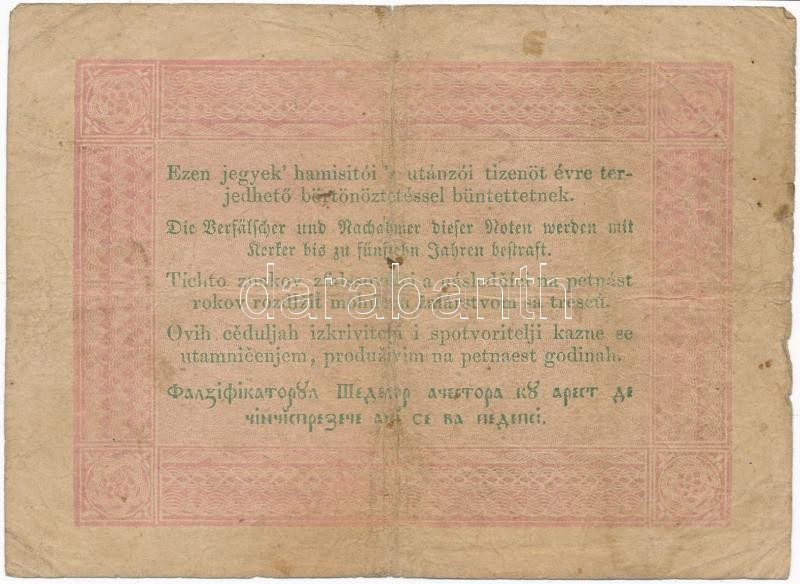 Ezen jegyek' hamisitói 's utánzói tizenöt évre ter-
jedhető börtönöztetéssel büntettetnek.
Die Verfälscher und Nachahmer dieser Noten werden mit
Kerker bis zu fünfzehn Jahren bestraft.
Tíchto znakov a následníci na petnást
rokov Žalárstvom sa trescú.
darabanth
Ovih cĕduljah izkrivitelji i spotvoritelji kazne se
utamničenjem, produživim na petnaest godinah.
Фалзіфікаторꙋл Шеделор ачестора кꙋ арест де
чінчіспрезече ані се ва педепсі.